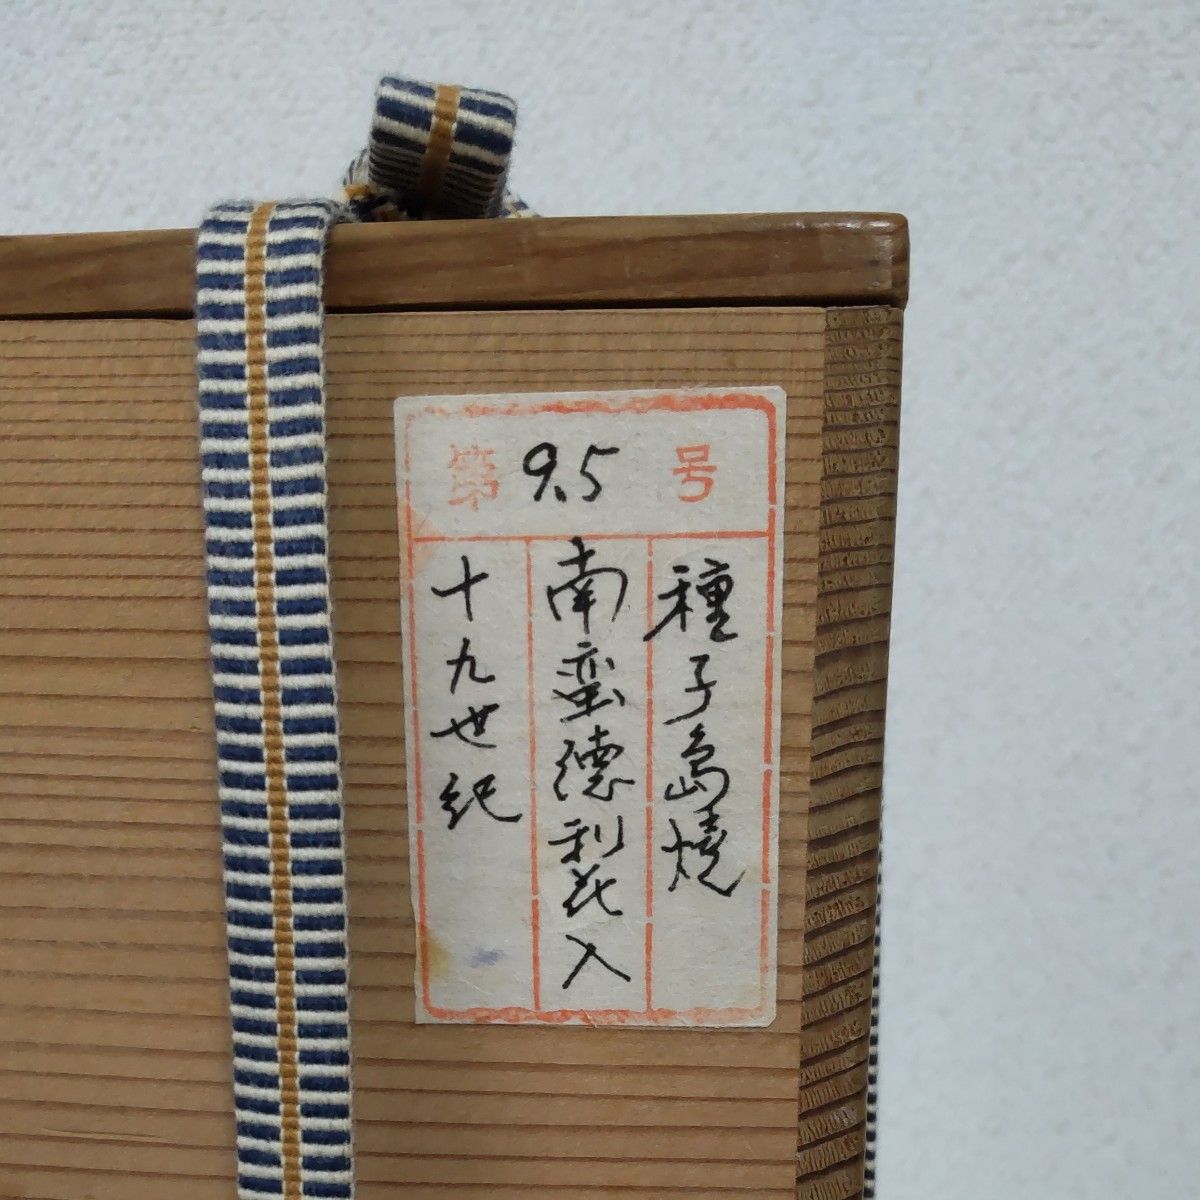 第 9.5 号
種子島燒
南蛮徳利花入
十九世紀